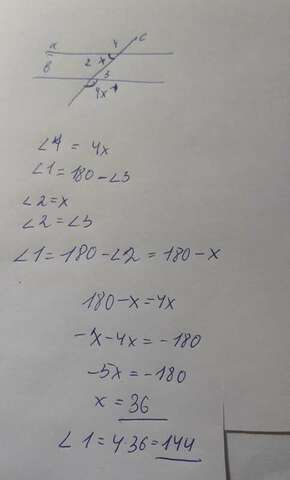 к
4 с
2 x
в
3
4x 1
∠4 = 4x
∠1 = 180 - ∠3
∠2 = x
∠2 = ∠3
∠1 = 180 - ∠2 = 180 - x
180 - x = 4x
-x - 4x = -180
-5x = -180
x = 36
∠1 = 4·36 = 144